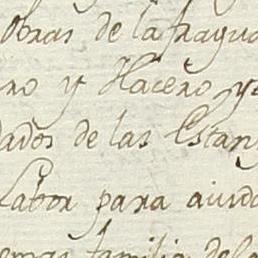 obras de la fragua
ro y Hacero, y
dados de las Estan
Labor para aiuda
emas familia dela